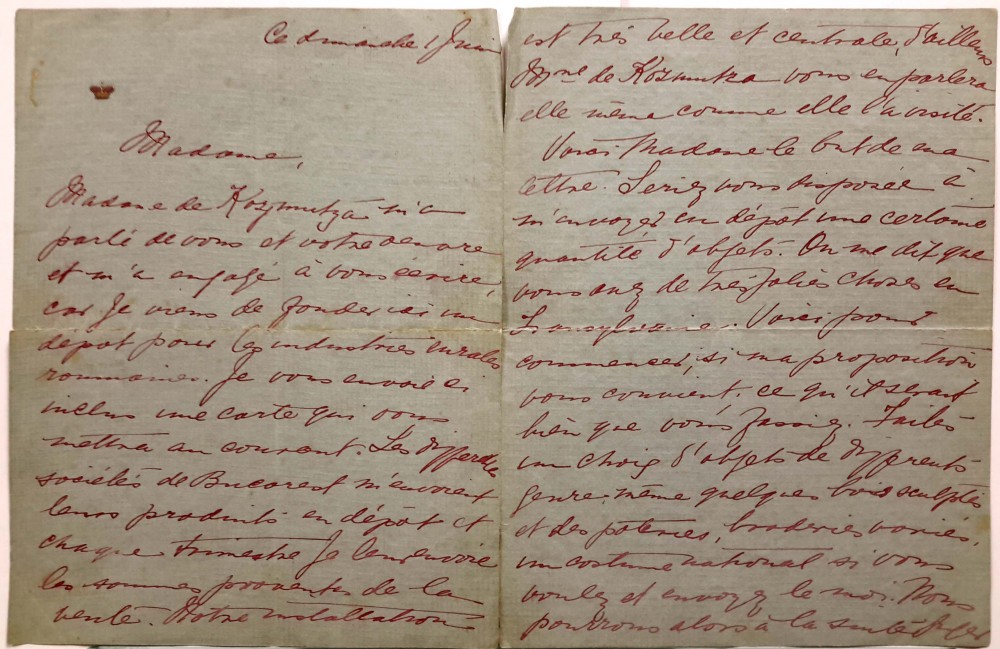 Ce dimanche 1 Juin
Madame,
Madame de Kozmutza m'a
parlé de vous et votre œuvre
et m'a engagé à vous écrire,
car je viens de fonder ici un
dépot pour les industries rurales
roumaines. Je vous envoie ci
inclus une carte qui vous
mettra au courant. Les différentes
sociétés de Bucarest m'envoient
leurs produits en dépôt et
chaque trimestre je leur envoie
les sommes provenues de la
vente. Notre installation
est très belle et centrale, d'ailleurs
Mme de Kozmutza vous en parlera
elle même comme elle l'a visité.
Voici Madame le but de ma
lettre. Seriez vous disposée à
m'envoyer en dépôt une certaine
quantité d'objets. On me dit que
vous avez de très jolies choses en
Transylvanie. Voici pour
commencer, si ma proposition
vous convient, ce qu'il serait
bien que vous fassiez. Faites
un choix d'objets de différents
genre, même quelques bois sculptés
et des poteries, broderies variées,
un costume national si vous
voulez et envoyez le moi. Nous
pourrons alors à la